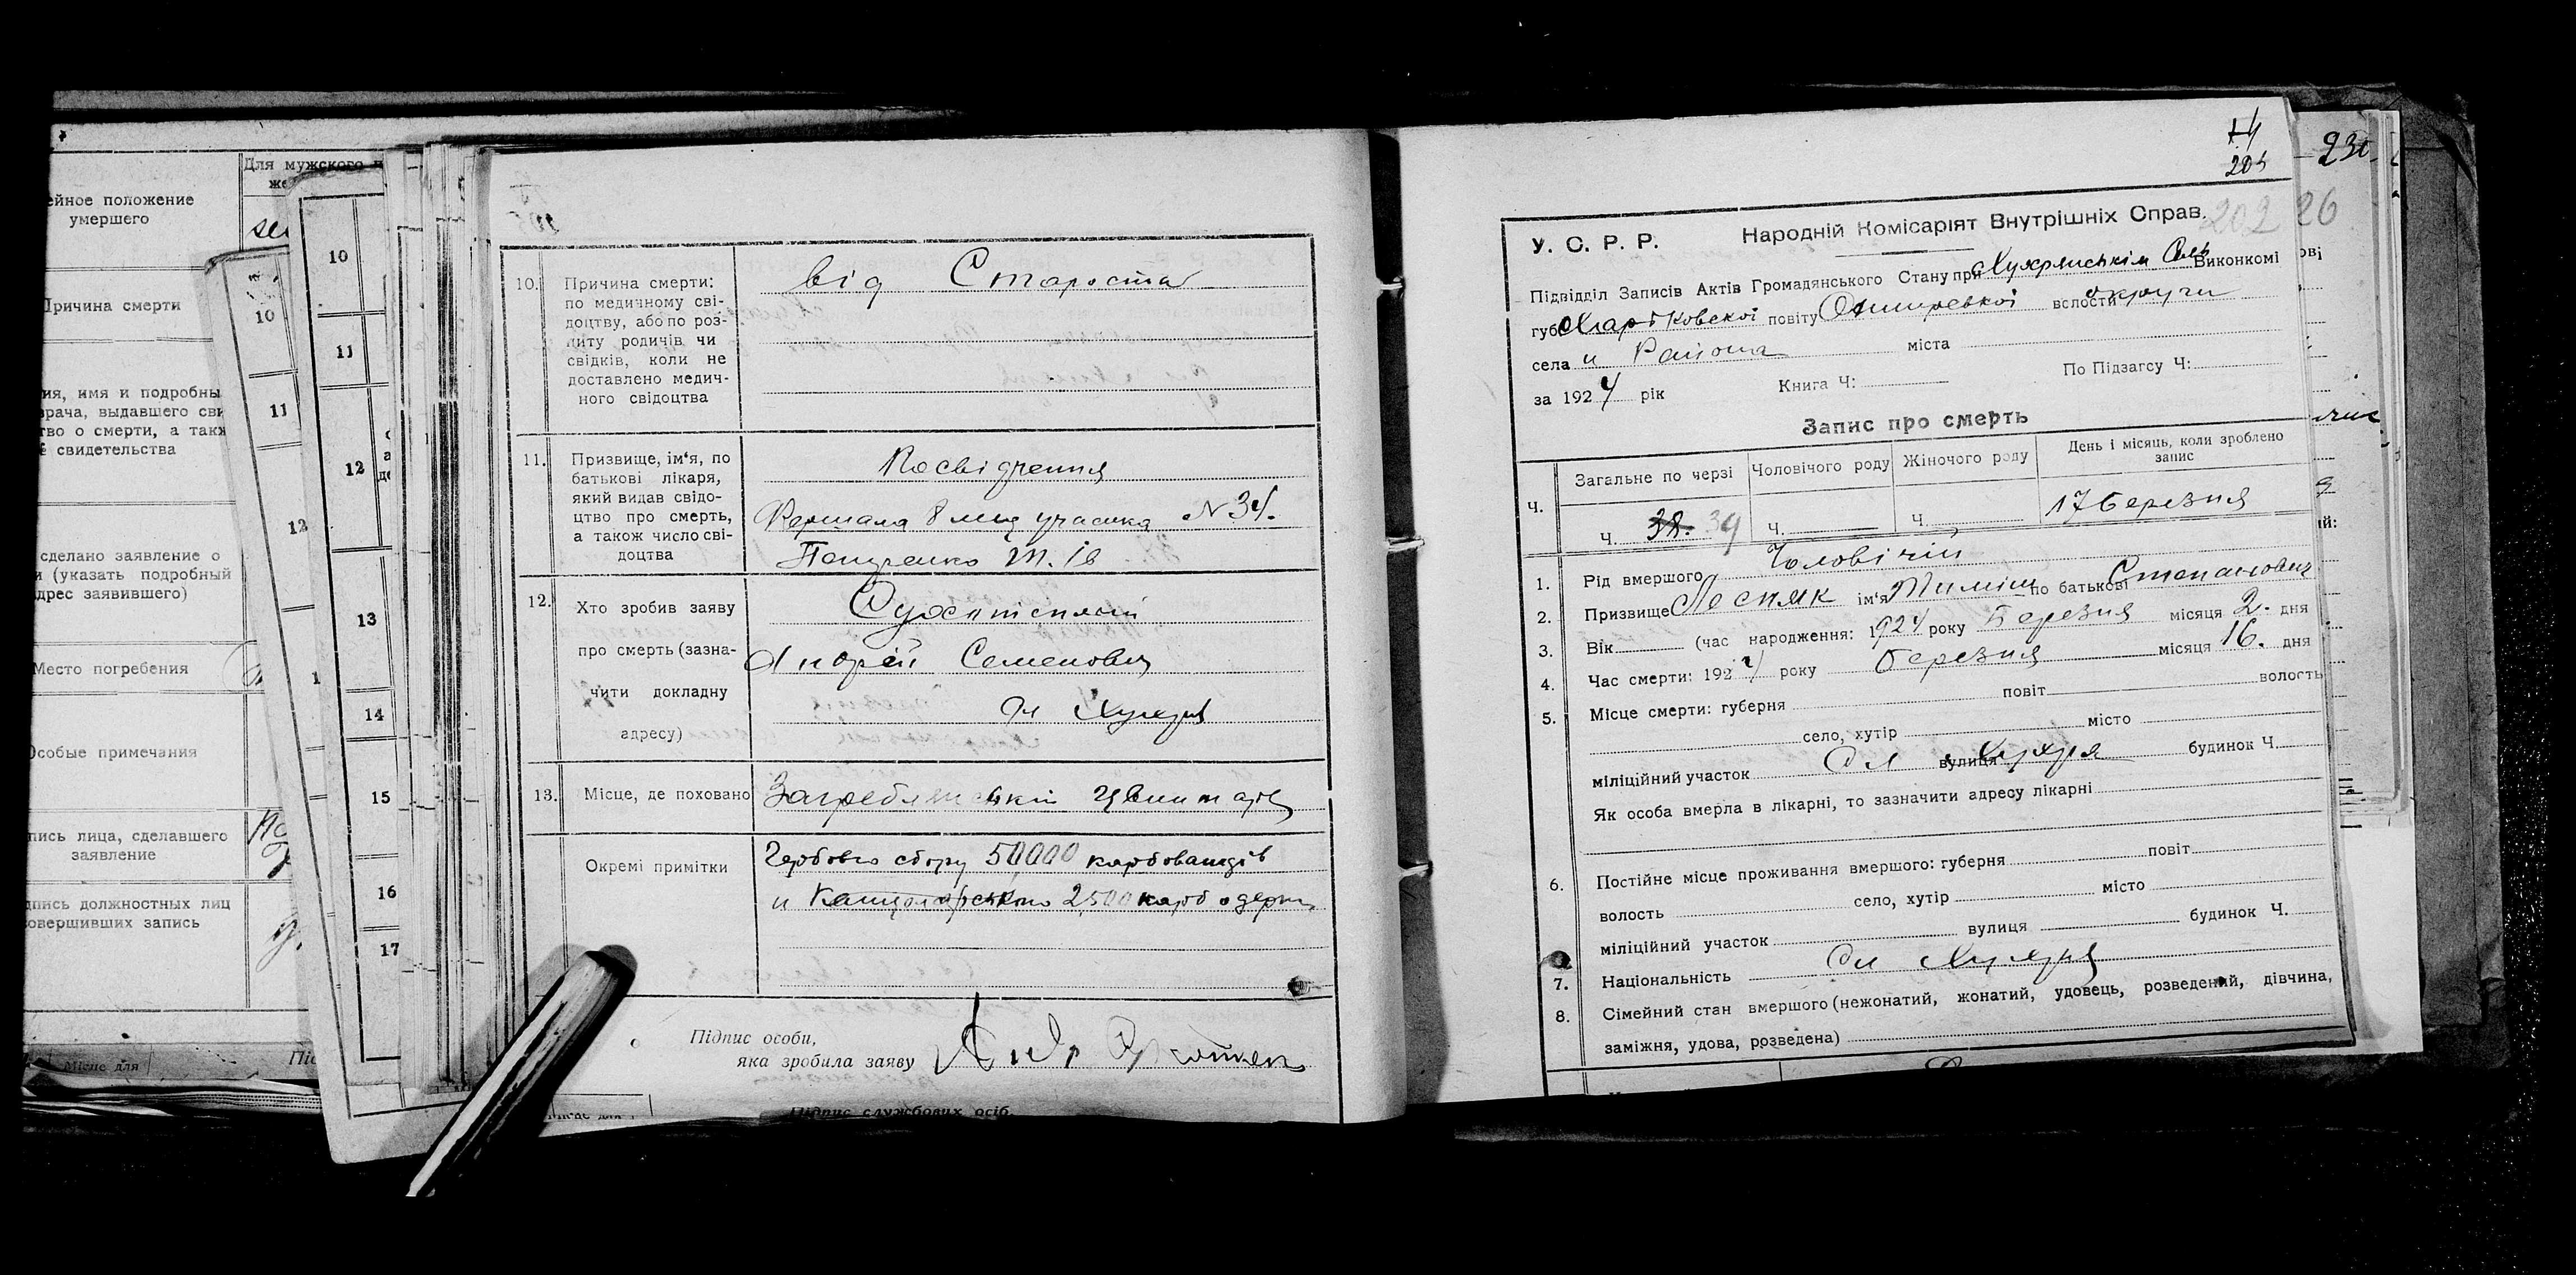 Для мужского
ейное положение
умершего
Причина смерти
ия, имя и подробны
врача, выдавшего сви
тво о смерти, а такж
свидетельства
сделано заявление о
и (указать подробный
адрес заявившего)
Место погребения
Особые примечания
пись лица, сделавшего
заявление
дпись должностных лиц
совершивших запись
Місце для
10
11
12
10
11
12
13
14
15
16
17
10.
Причина смерти:
по медичному сві-
доцтву, або по роз-
питу родичів чи
свідків, коли не
доставлено медич-
ного свідоцтва
від Старости
11.
Призвище, ім'я, по
батькові лікаря,
який видав свідо-
цтво про смерть,
а також число сві-
доцтва
Посвідчення
Фершала 8 мед участка N 34.
12.
Хто зробив заяву
про смерть (зазна-
чити докладну
адресу)
Андрій Семенович
Хухря
13.
Місце, де поховано
Окремі примітки
Гербового сбору 50000 карбованців
и Канцолярського 2500 карб одерж
Підпис особи,
яка зробила заяву
Підпис службових осіб.
205
230
202
26
У. С. Р. Р. Народній Комісаріят Внутрішніх Справ.
Підвідділ Записів Актів Громадянського Стану при Хухрянськім Виконкомі
губ Харьковскої повіту волости округи
села и Района міста
за 1924 рік Книга Ч: По Підзагсу Ч:
Запис про смерть
Ч. Загальне по черзі Чоловічого роду Жіночого роду День і місяць, коли зроблено
запис
Ч. 38. 39 Ч. Ч. 17 Березня
1. Рід вмершого Чоловічій
2. Призвище Лесняк ім'я Тиміш по батькові Степанович
3. Вік (час народження: 1924 року Березня місяця 2. дня
4. Час смерти: 1924 року Березня місяця 16. дня
5. Місце смерти: губерня повіт волость
село, хутір місто
міліційний участок вулиця Хухря будинок Ч.
Як особа вмерла в лікарні, то зазначити адресу лікарні
6. Постійне місце проживання вмершого: губерня повіт
волость село, хутір місто
міліційний участок вулиця будинок Ч.
7. Національність Хухря
8. Сімейний стан вмершого (нежонатий, жонатий, удовець, розведений, дівчина,
заміжня, удова, розведена)